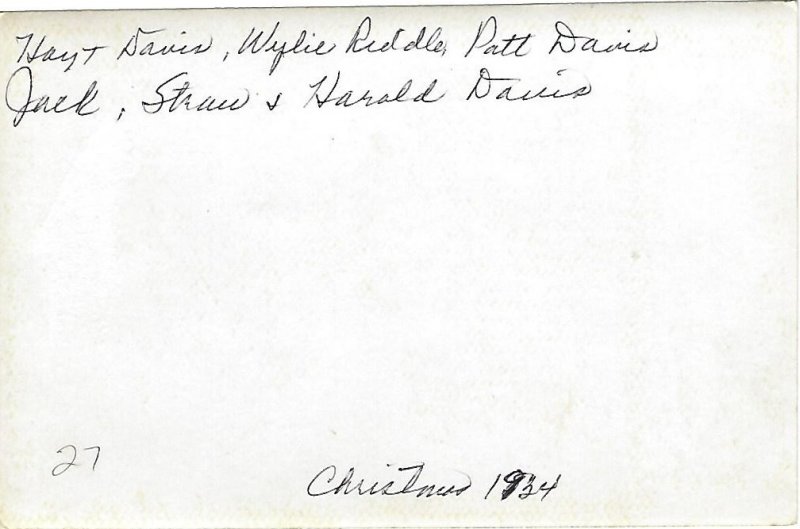 Hoyt Davis, Wylie Riddle, Patt Davis
Jack, Straw & Harold Davis
27
Christmas 1934